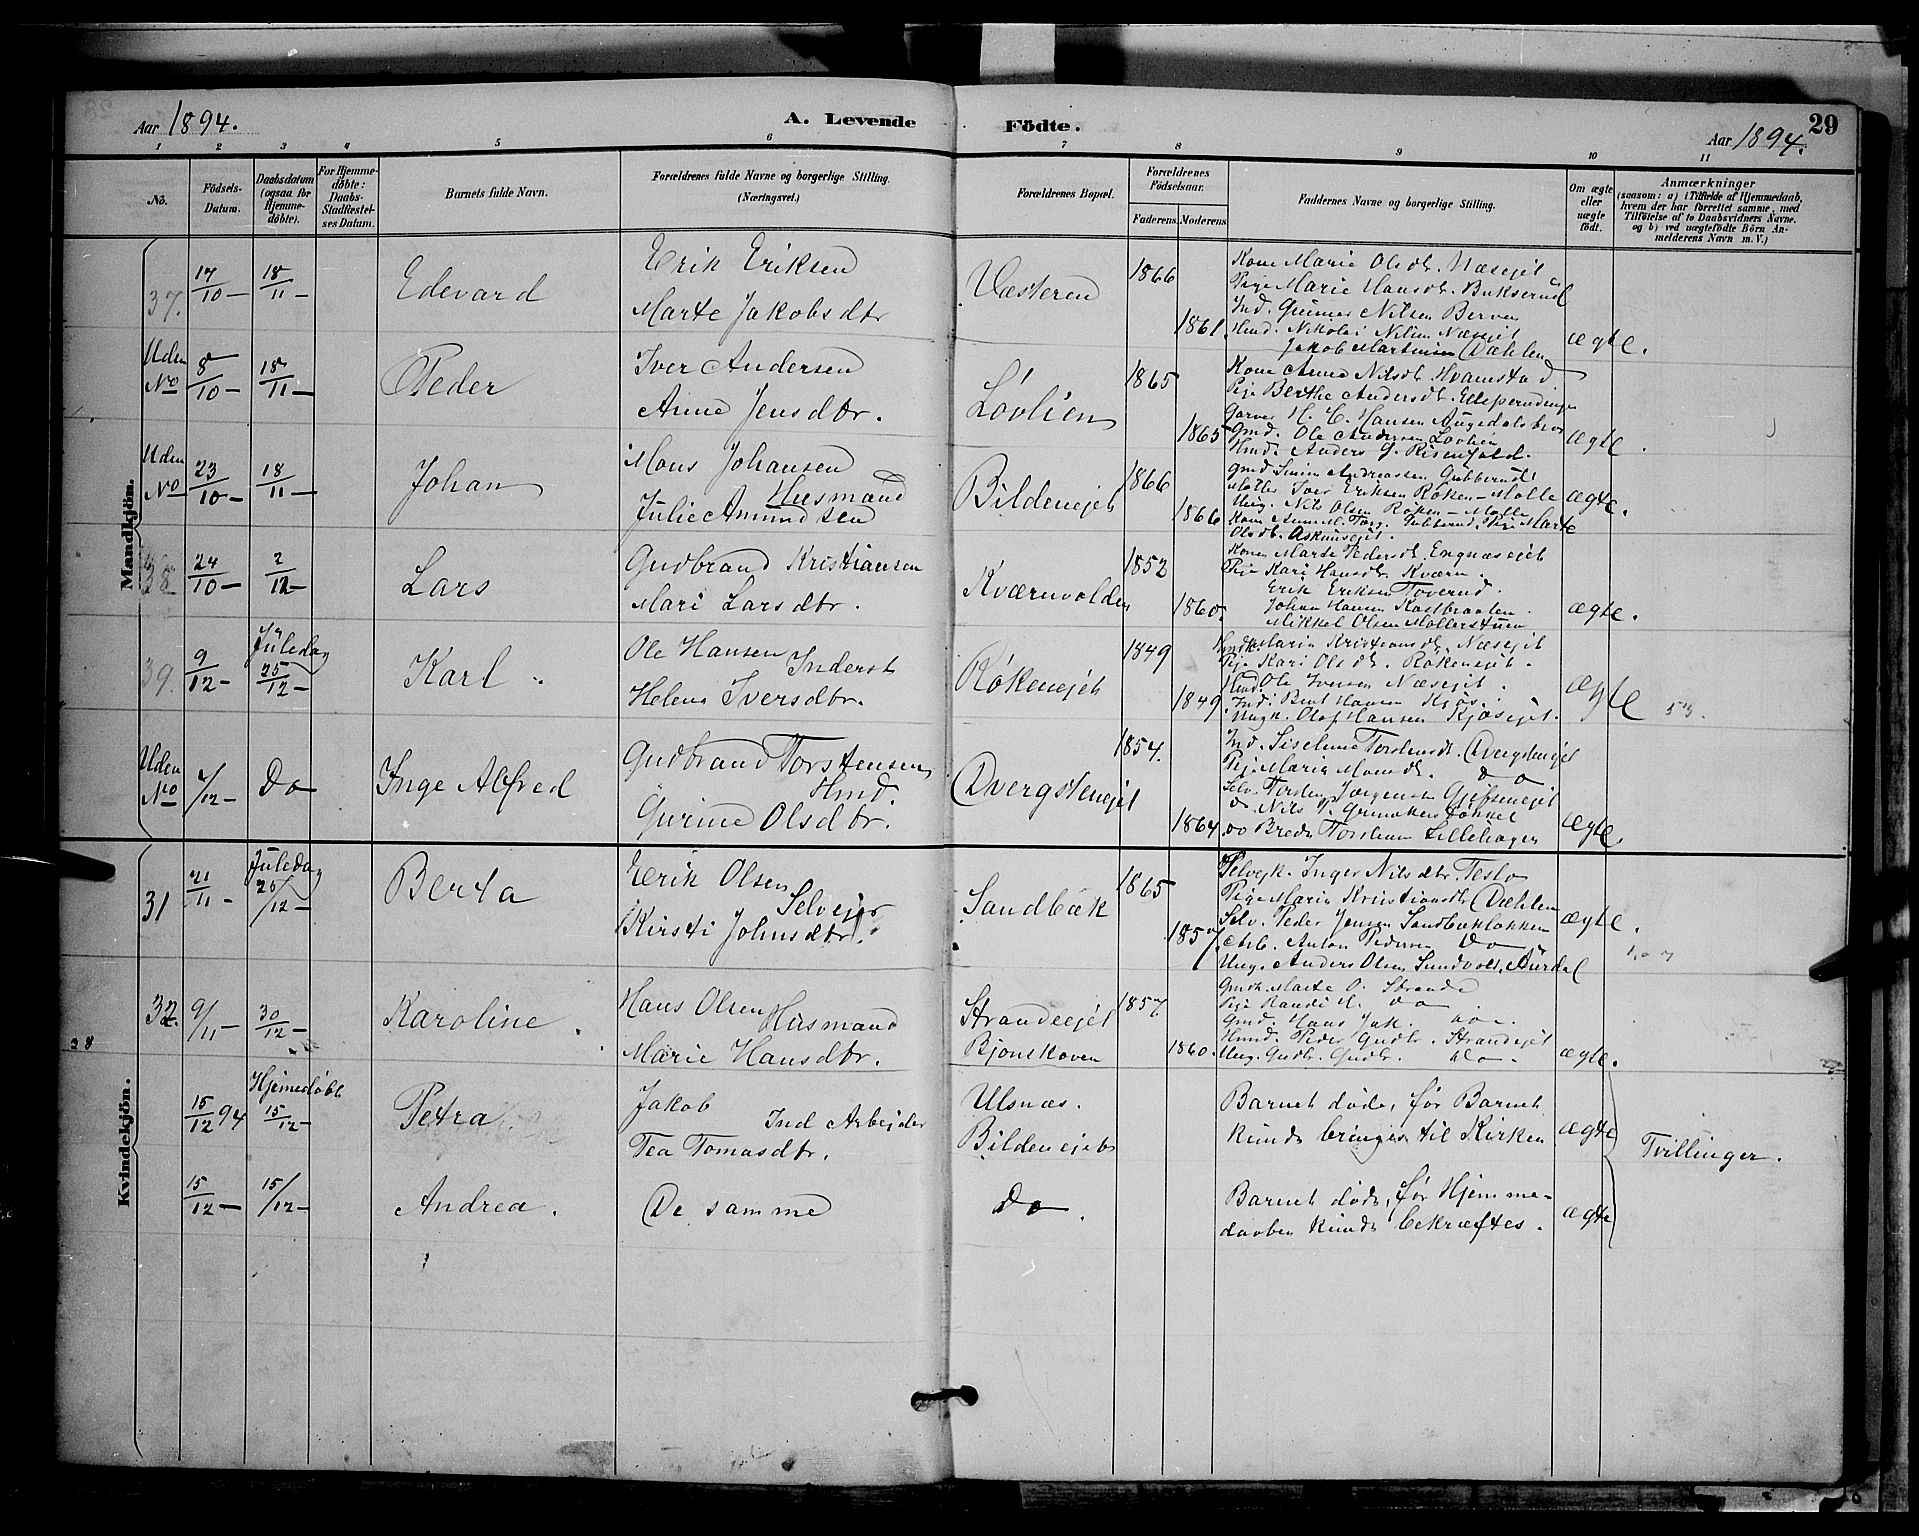 Aar 1894.
A. Levende
Födte.
Aar 1894.
29
1 2 3 4 5 6 7 8 9 10 11
No.
Födsels-Datum.
Daabsdatum (ogsaa for Hjemme-döbte).
For Hjemme-döbte: Daabs-Stadfestel-ses Datum.
Barnets fulde Navn.
Forældrenes fulde Navne og borgerlige Stilling. (Næringsvei.)
Forældrenes Bopæl.
Forældrenes Födselsaar.
Faderens Moderens
Faddernes Navne og borgerlige Stilling.
Om ægte eller uægte födt.
Anmærkninger
(saasom: a) i Tilfælde af Hjemmedaab, hvem der har forrettet samme, med Tilföielse af to Daabsvidners Navne. og b) ved uægtefödte Börn An-melderens Navn m. V.)
Mandkjön.
37. 17/10 – 18/11 – Edevard
Erik Eriksen
Marte Jakobsdtr
Væsteren 1866
1861.
Kone Marie Olsdt. Næsejet
Pige Marie Hansdt. Bukserud
Ind. Gunner Nilsen Berven
Hmd. Nikolai Nilsen Næsejet
Jakob Martinsen Dæhlen
ægte.
Uden No 8/10 – 18/11 – Peder
Iver Andersen
Anne Jensdtr.
Lövlien 1865
1865
Kone Anne Nilsdt. Hvamstad
Pige Berthe Andersdt.
Garver H. C. Hansen Augedalsbro
Gmd. Ole Andersen Lovlien
Hmd. Anders G. Risenfald.
ægte.
Uden No 23/10 – 18/11 – Johan
Mons Johansen
Husmand
Julie Amundsen
Bildenejet 1866
1866
Gmd Simen Andreassen Gubberud
Möller Iver Eriksen Röken–Mölle
Ung. Nils Olsen Röken–Mölle
Kone Anne M. Torg. Gubberud, Pige Marte
Olsdt. Askimsejet.
ægte.
38 24/10 – 2/12 – Lars
Gudbrand Kristiansen
Mari Larsdtr.
Kværnvolden 1852
1860.
Kone Marte Pedersdt. Engnæsejet
Pige Kari Hansdt. Kværn.
Erik Eriksen Toverud.
Johan Hansen Kastbraaten.
Mikkel Olsen Möllerstuen
ægte.
39. 9/12 – Juledag 25/12 – Karl
Ole Hansen
Inderst
Helene Iversdtr.
Rökenejet 1849
1849
Hmdk. Maria Kristiansdt. Næsejet
Pige Kari Olsdt. Rökenejet.
Hmd. Ole Iversen Næsejet.
Ind. Bent Hansen Kjös.
Ungk. Olaf Hansen Kjösejet.
ægte
53.
Uden No /12 – Do Inge Alfred
Gudbrand Torstensen
Hmd.
Gurine Olsdtr.
Dvergstenejet 1854.
1864.
Ind. Siselene Torstensdt. Dvergstenejet
Pige Maria Monsdt. do
Selv. Torsten Jörgensen
do Nils P. Grinaker
do Brede Torstensen Lillehagen
ægte.
Kvindekjön.
31 21/11 – Juledag 25/12 – Berta
Erik Olsen
Selvejer
Kirsti Johnsdtr.
Sandbæk 1865
1857
Selvejk. Inger Nilsdtr. Teslo
Pige Marie Kristiansdt. Dæhlen
Selv. Peder Jensen Sandbækløkken
Arb. Anton Pedersen Do
Ung. Anders Olsen Sundvold, Aurdal
ægte.
32. 9/11 – 30/12 – Karoline.
Hans Olsen
Husmand
Marie Hansdtr.
Strandeejet
Bjoneskoven 1857
1860.
Gmdk. Marte O. Strande
Pige Randi H. do
Gmd. Hans Jak. do.
Hmd. Peder Gudbr. Strandejet
Ung. Gudbr. Gudbr. do.
ægte.
38
15/12 94 Hjemedöbt 15/12 – Petra.
Jakob
Ind Arbejder
Tea Tomasdtr.
Ulsnæs.
Bildenejet
Barnet döde, för Barnet
kunde bringes til Kirken
ægte
Tvillinger.
15/12 – 15/12 – Andrea.
De samme
Do.
Barnet döde, för Hjemme-
daaben kunde bekræftes.
ægte